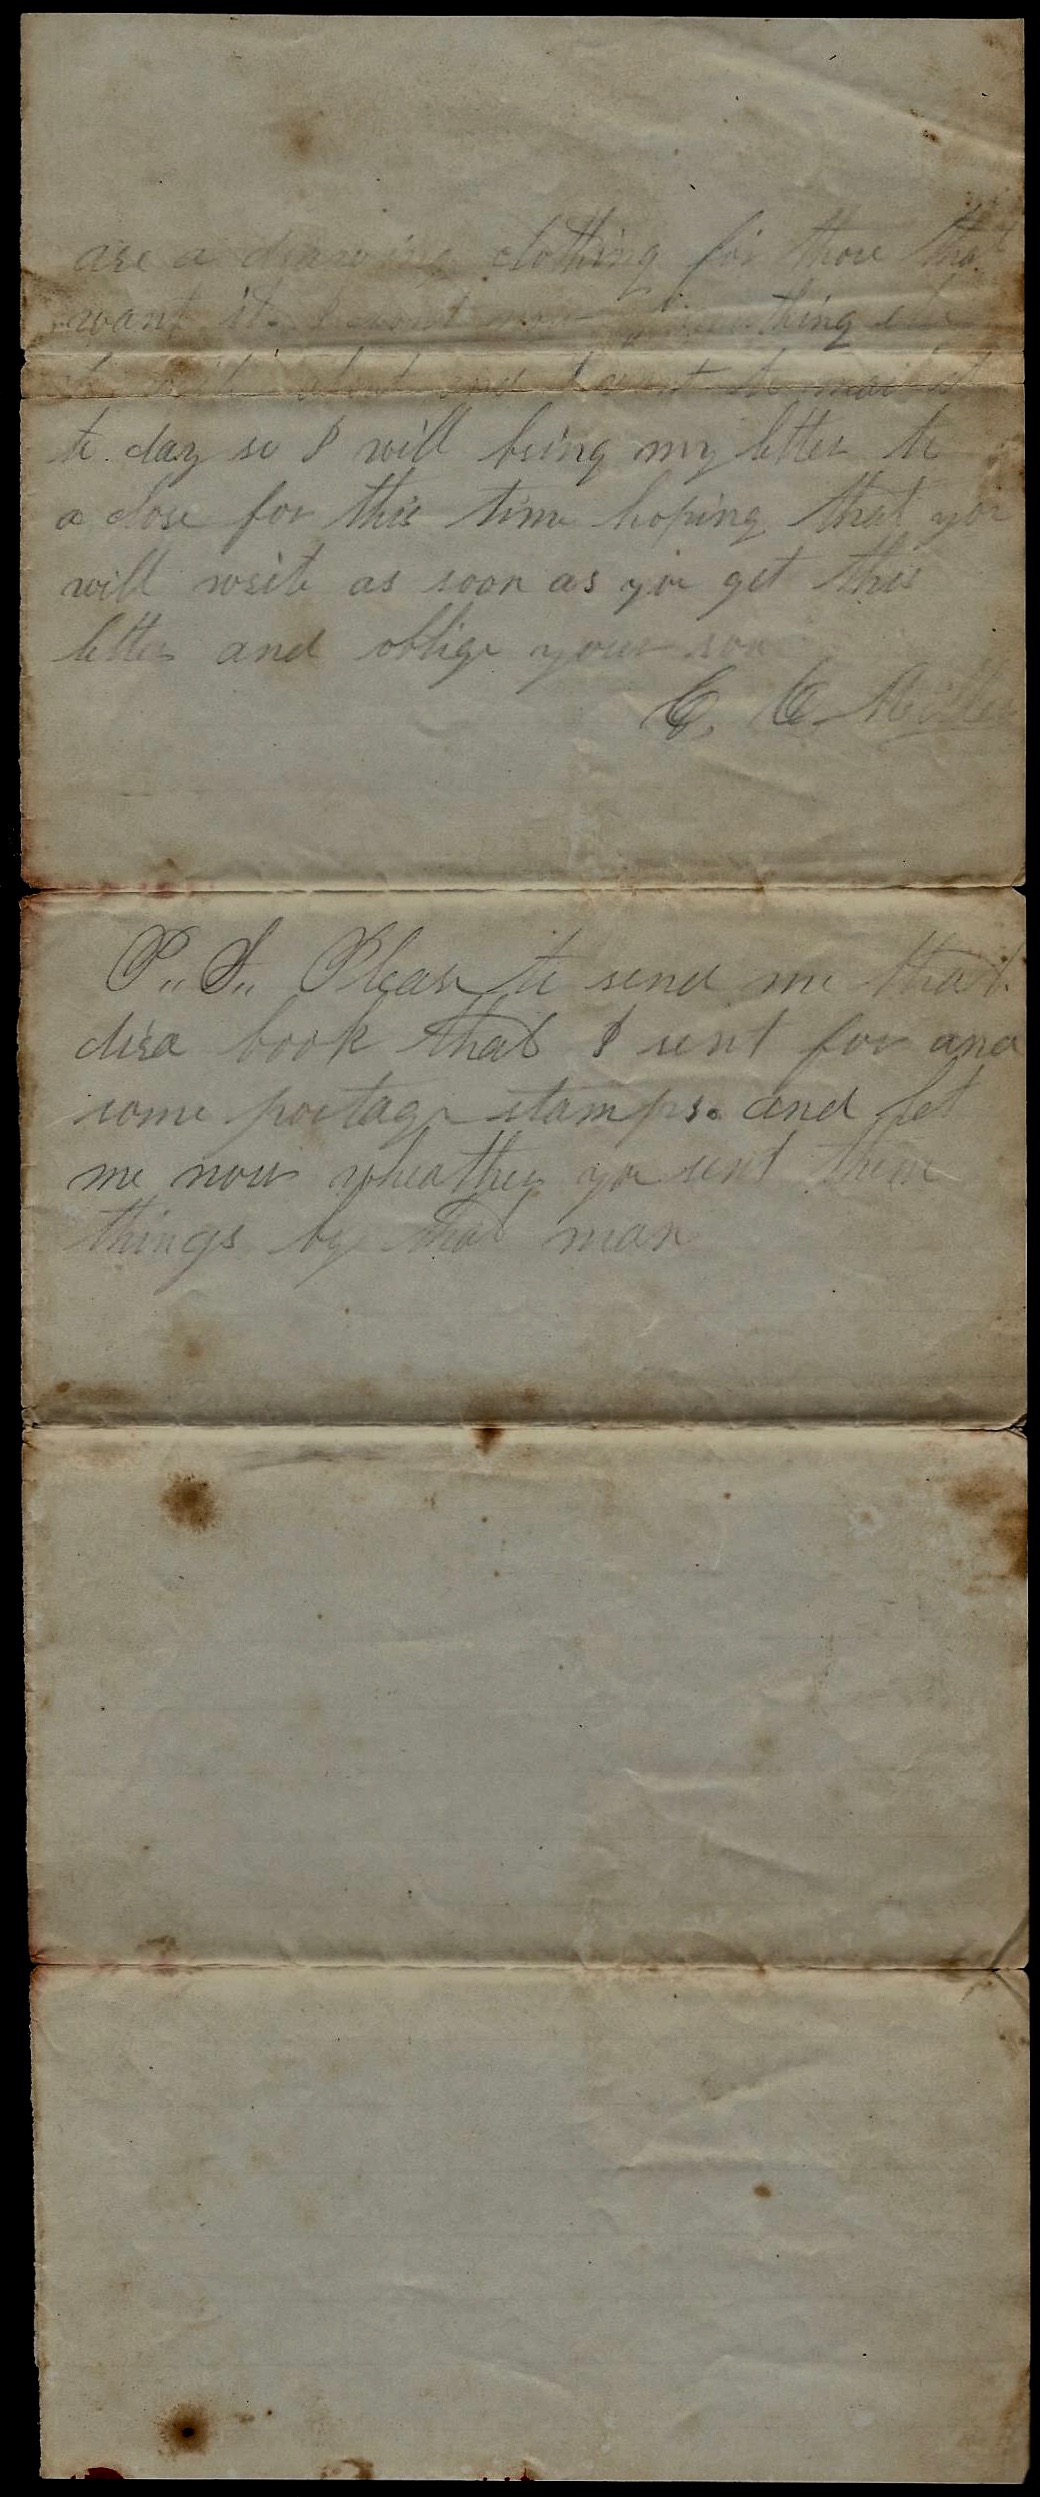 are a drawing clothing for those that
want it. I dont now any thing
to write about and I want to mail it
to day so I will bring my letter to
a close for this time hoping that you
will write as soon as you get this
letter and oblige your son
C. C. Miller
P.,, S.,, Please to send me that
dira book that I sent for and
some postage stamps. and let
me now wheather you sent them
things by that man